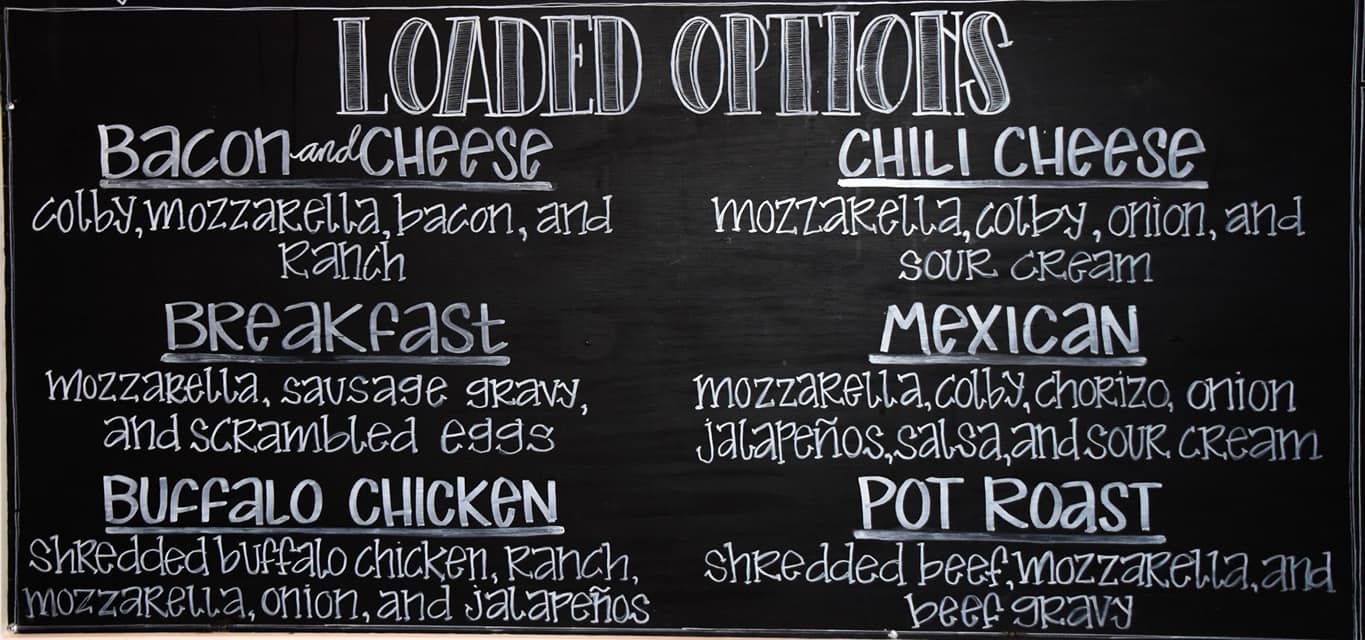 LOADED OPTIONS
Bacon and CHeese
colby, mozzarella, bacon, and
Ranch
Breakfast
mozzarella, sausage gravy,
and scrambled eggs
Buffalo Chicken
shredded buffalo chicken, Ranch,
mozzarella, onion, and jalapeños
CHILI CHeese
mozzarella, colby, onion, and
sour cream
Mexican
mozzarella, colby, chorizo, onion
jalapeños, salsa, and sour cream
Pot Roast
shredded beef, mozzarella, and
beef gravy